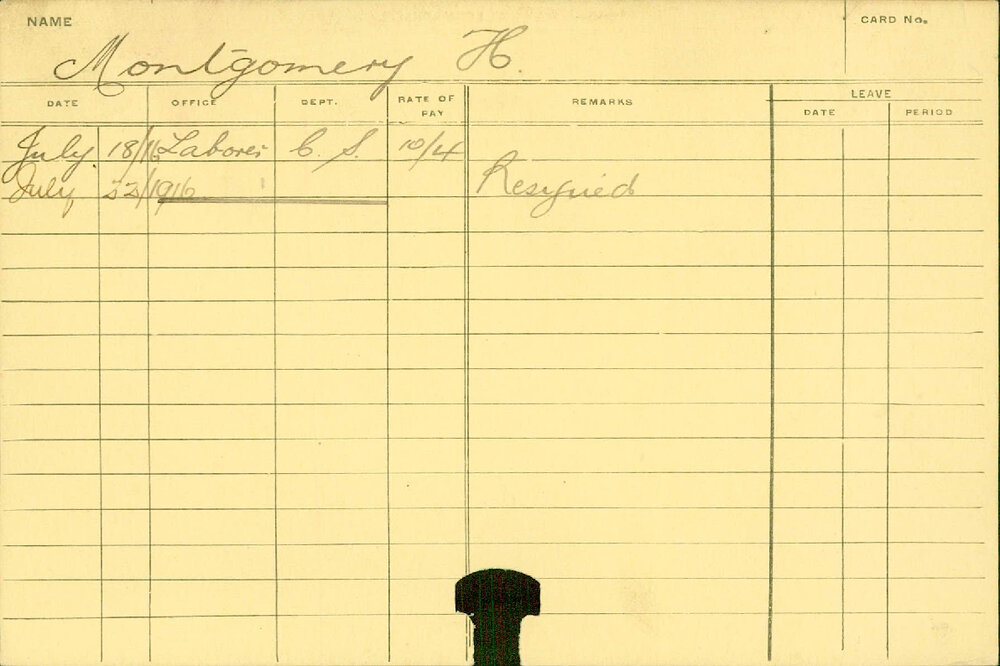 NAME
CARD No.
Montgomery H.
DATE OFFICE DEPT. RATE OF PAY REMARKS LEAVE
DATE PERIOD
July 18/16 Laborer C. S. 10/4
July 22/1916 Resigned